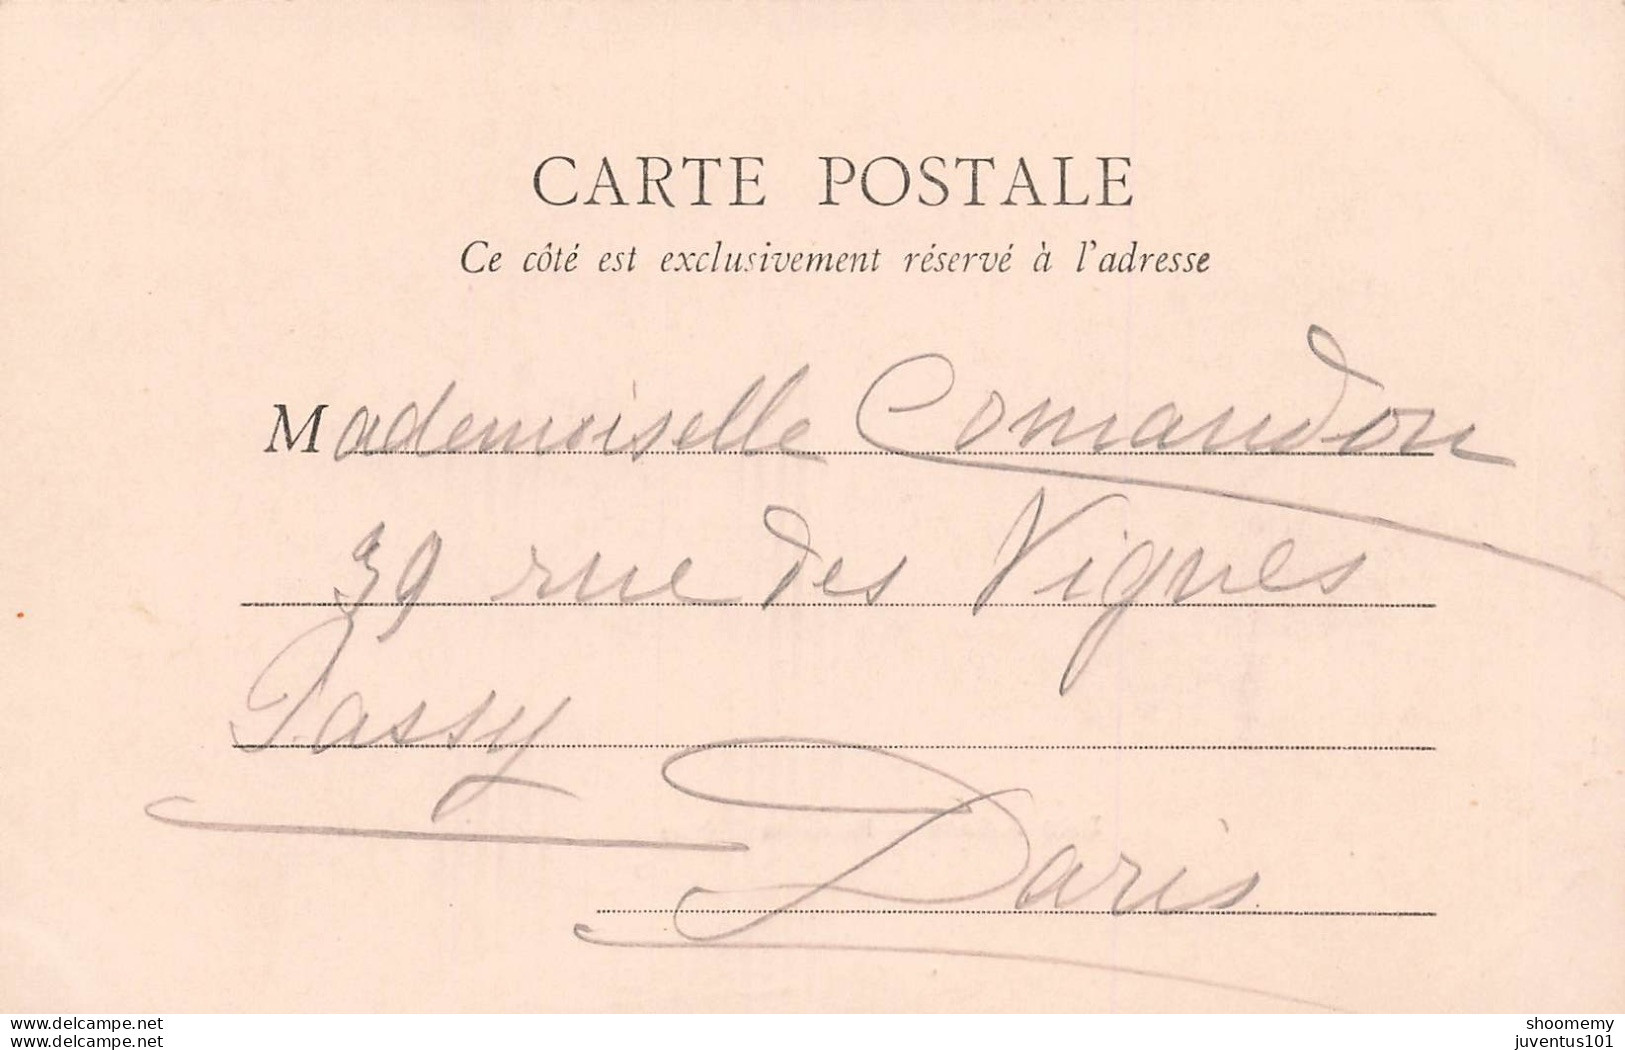 CARTE POSTALE
Ce côté est exclusivement réservé à l'adresse
Mademoiselle Comandon
39 rue des Vignes
Passy
Paris
www.delcampe.net
shoomemy
juventus101